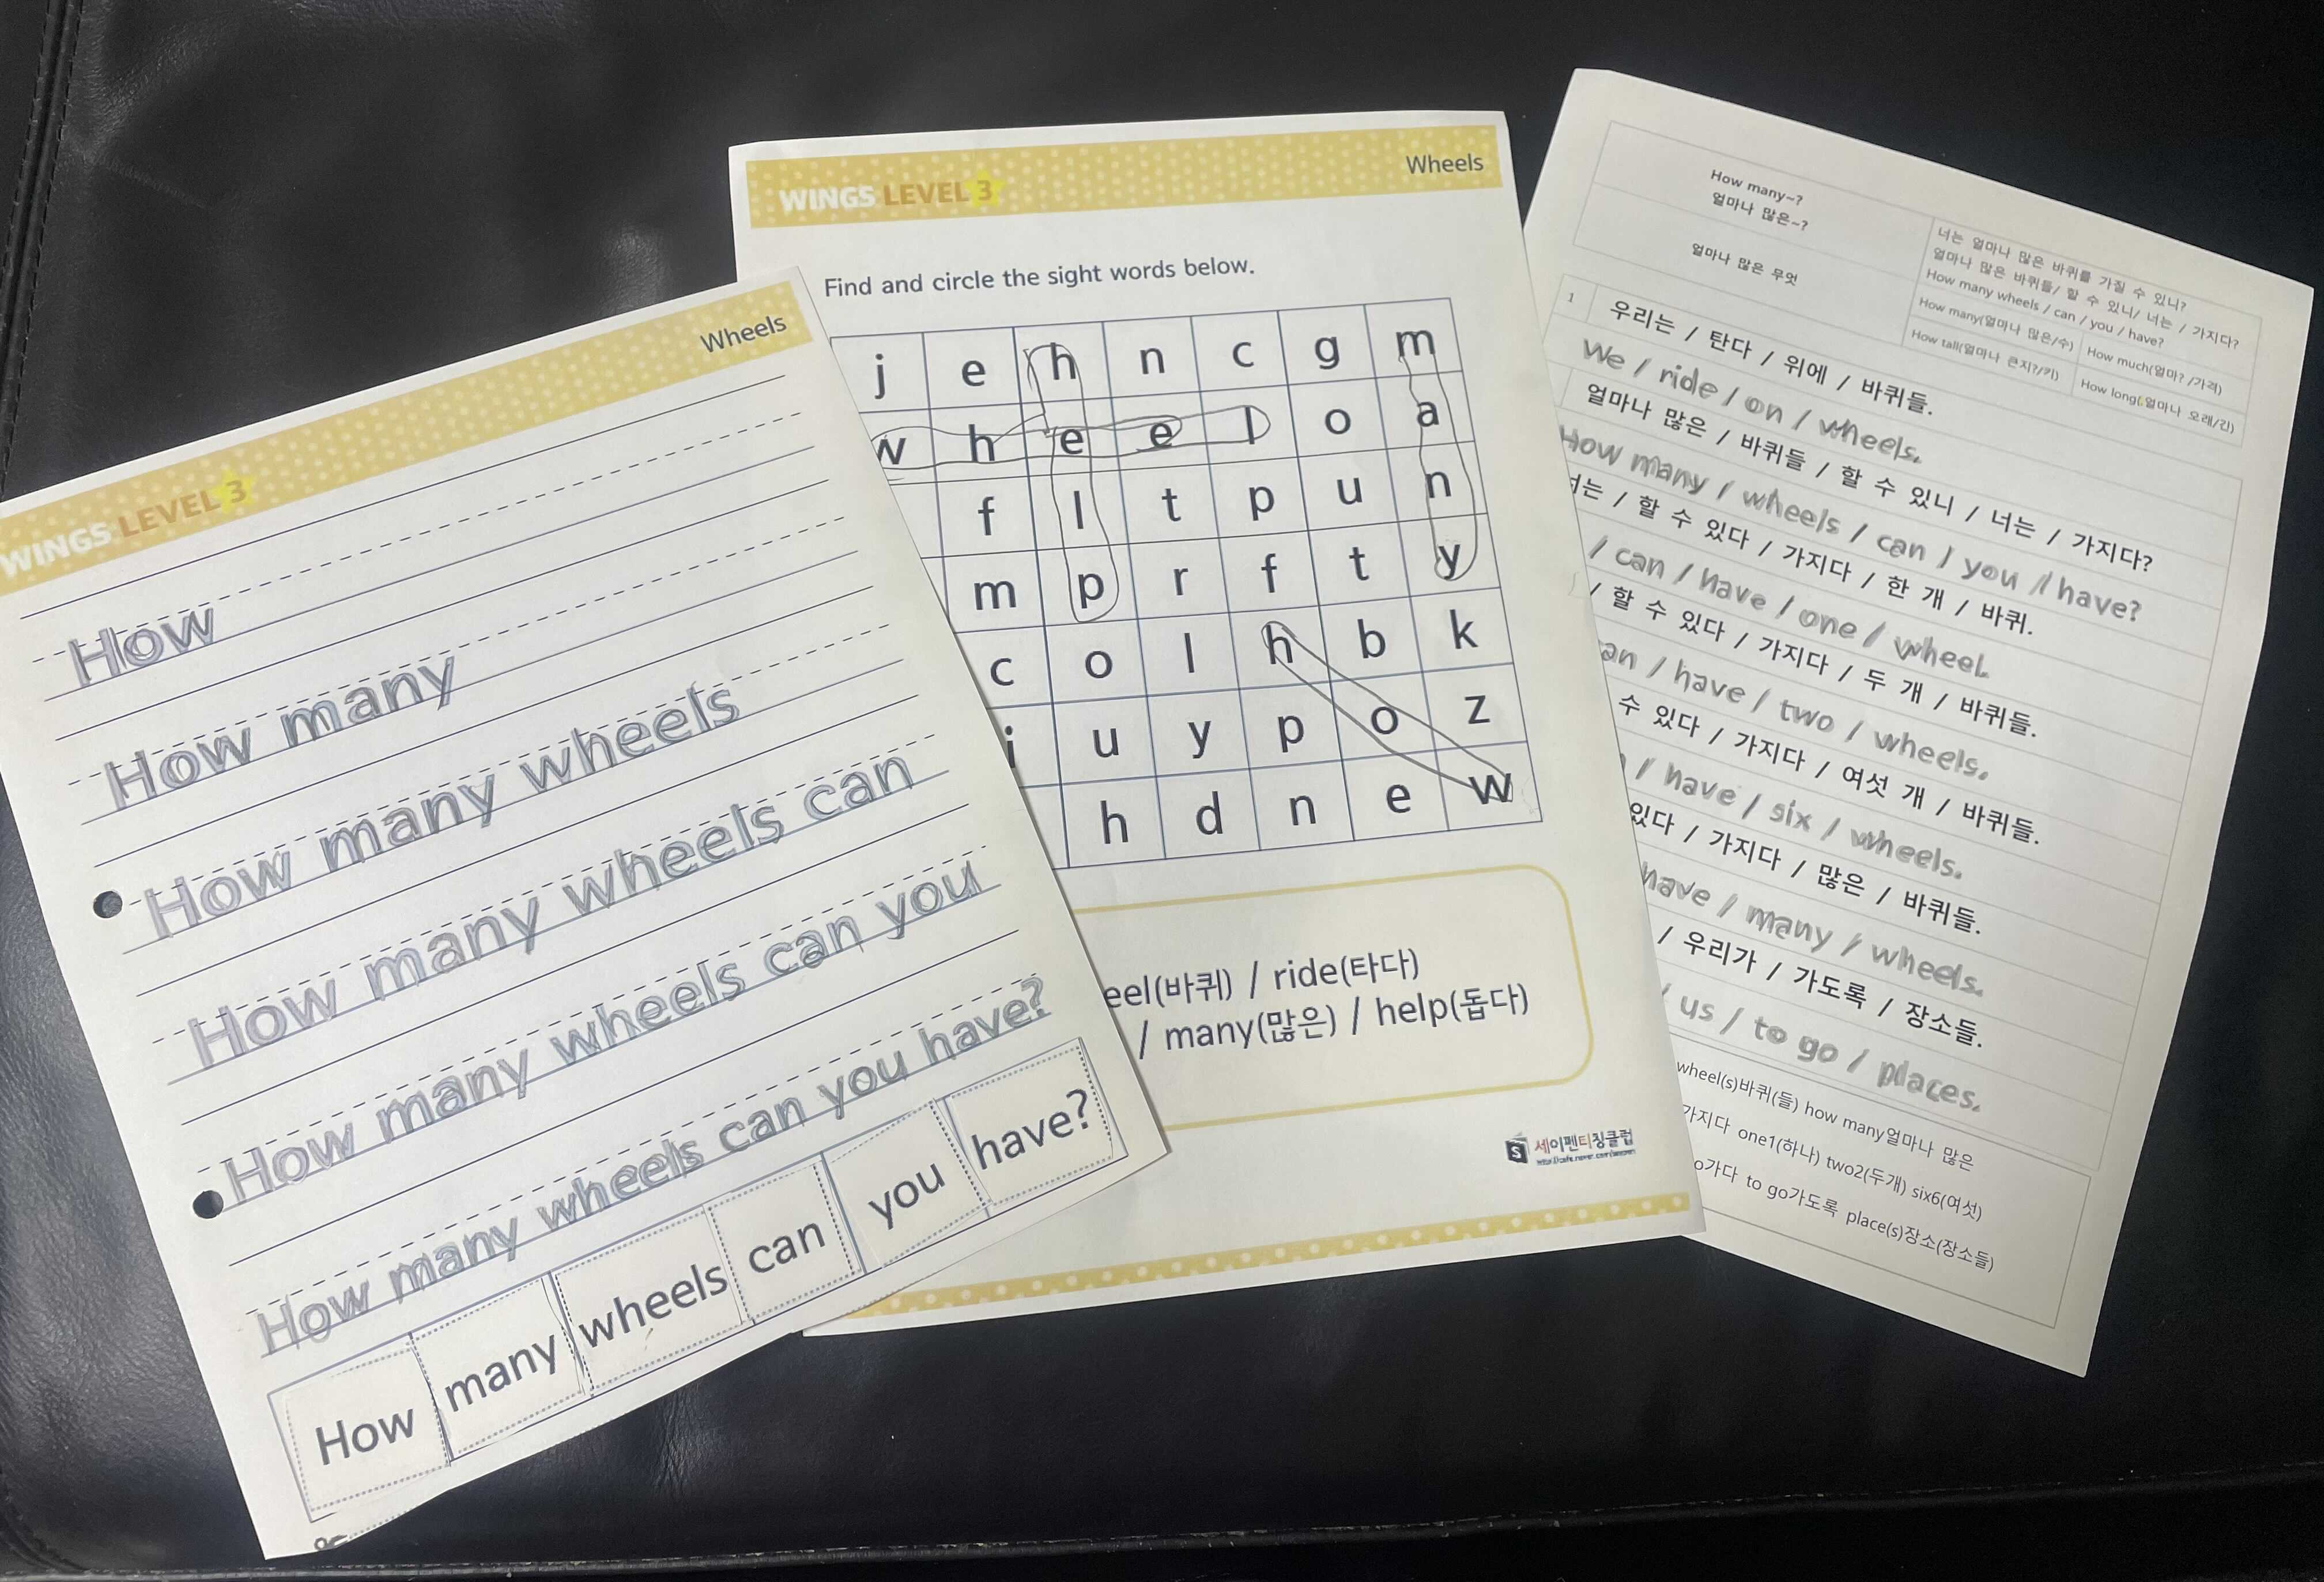 Wheels
WINGS LEVEL 3
How
How many
How many wheels
How many wheels can
How many wheels can you
How many wheels can you have?
How many wheels can you have?
Wheels
WINGS LEVEL 3
Find and circle the sight words below.
j e h n c g m
w h e e l o a
f l t p u n
m p r f t y
c o l h b k
i u y p o z
h d n e w
eel(바퀴) / ride(타다)
/ many(많은) / help(돕다)
세이펜티칭클럽
How many~?
얼마나 많은~?
얼마나 많은 무엇
너는 얼마나 많은 바퀴를 가질 수 있니?
얼마나 많은 바퀴들/ 할 수 있니/ 너는 / 가지다?
How many wheels / can / you / have?
How many(얼마나 많은/수) How much(얼마? /가격)
How tall(얼마나 큰지?/키) How long(얼마나 오래/긴)
1 우리는 / 탄다 / 위에 / 바퀴들.
We / ride / on / wheels.
얼마나 많은 / 바퀴들 / 할 수 있니 / 너는 / 가지다?
How many / wheels / can / you / have?
너는 / 할 수 있다 / 가지다 / 한 개 / 바퀴.
/ can / have / one / wheel.
/ 할 수 있다 / 가지다 / 두 개 / 바퀴들.
an / have / two / wheels.
수 있다 / 가지다 / 여섯 개 / 바퀴들.
/ have / six / wheels.
있다 / 가지다 / 많은 / 바퀴들.
have / many / wheels.
/ 우리가 / 가도록 / 장소들.
/ us / to go / places.
wheel(s)바퀴(들) how many얼마나 많은
가지다 one1(하나) two2(두개) six6(여섯)
o가다 to go가도록 place(s)장소(장소들)